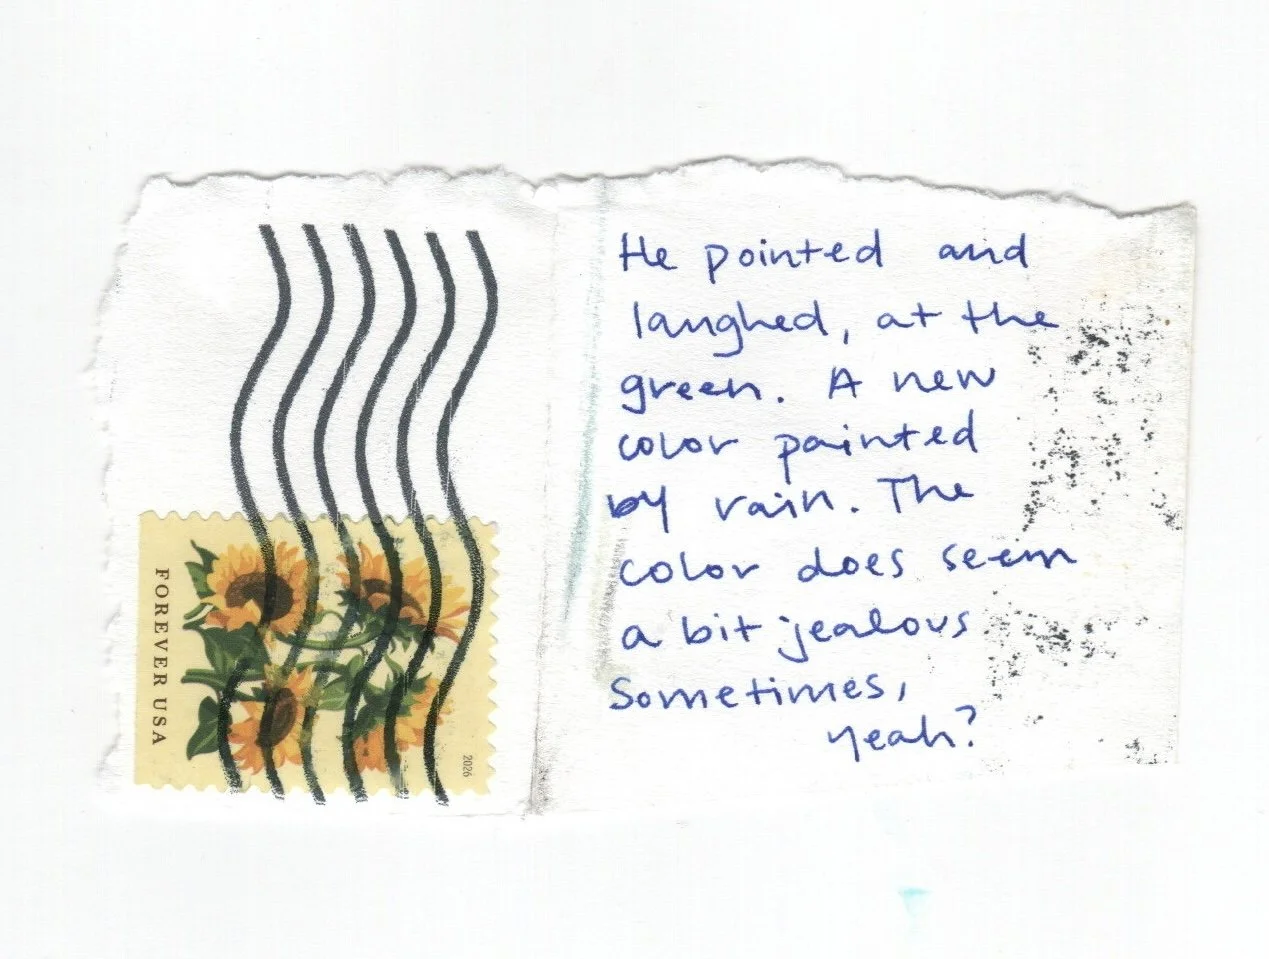 FOREVER USA
2026
He pointed and
laughed, at the
green. A new
color painted
by rain. The
color does seem
a bit jealous
Sometimes,
yeah?